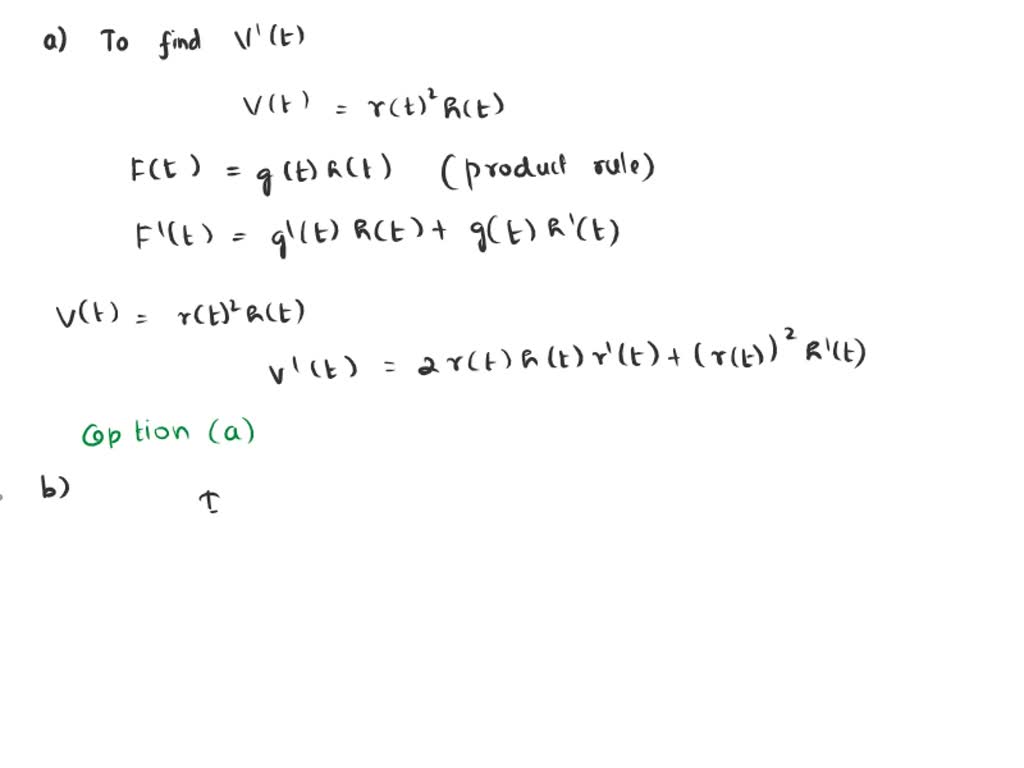 a) To find V'(t)
V(t) = r(t)² h(t)
F(t) = g(t) h(t) (product rule)
F'(t) = g'(t) h(t) + g(t) h'(t)
V(t) = r(t)² h(t)
V'(t) = 2 r(t) h(t) r'(t) + (r(t))² h'(t)
Option (a)
b)